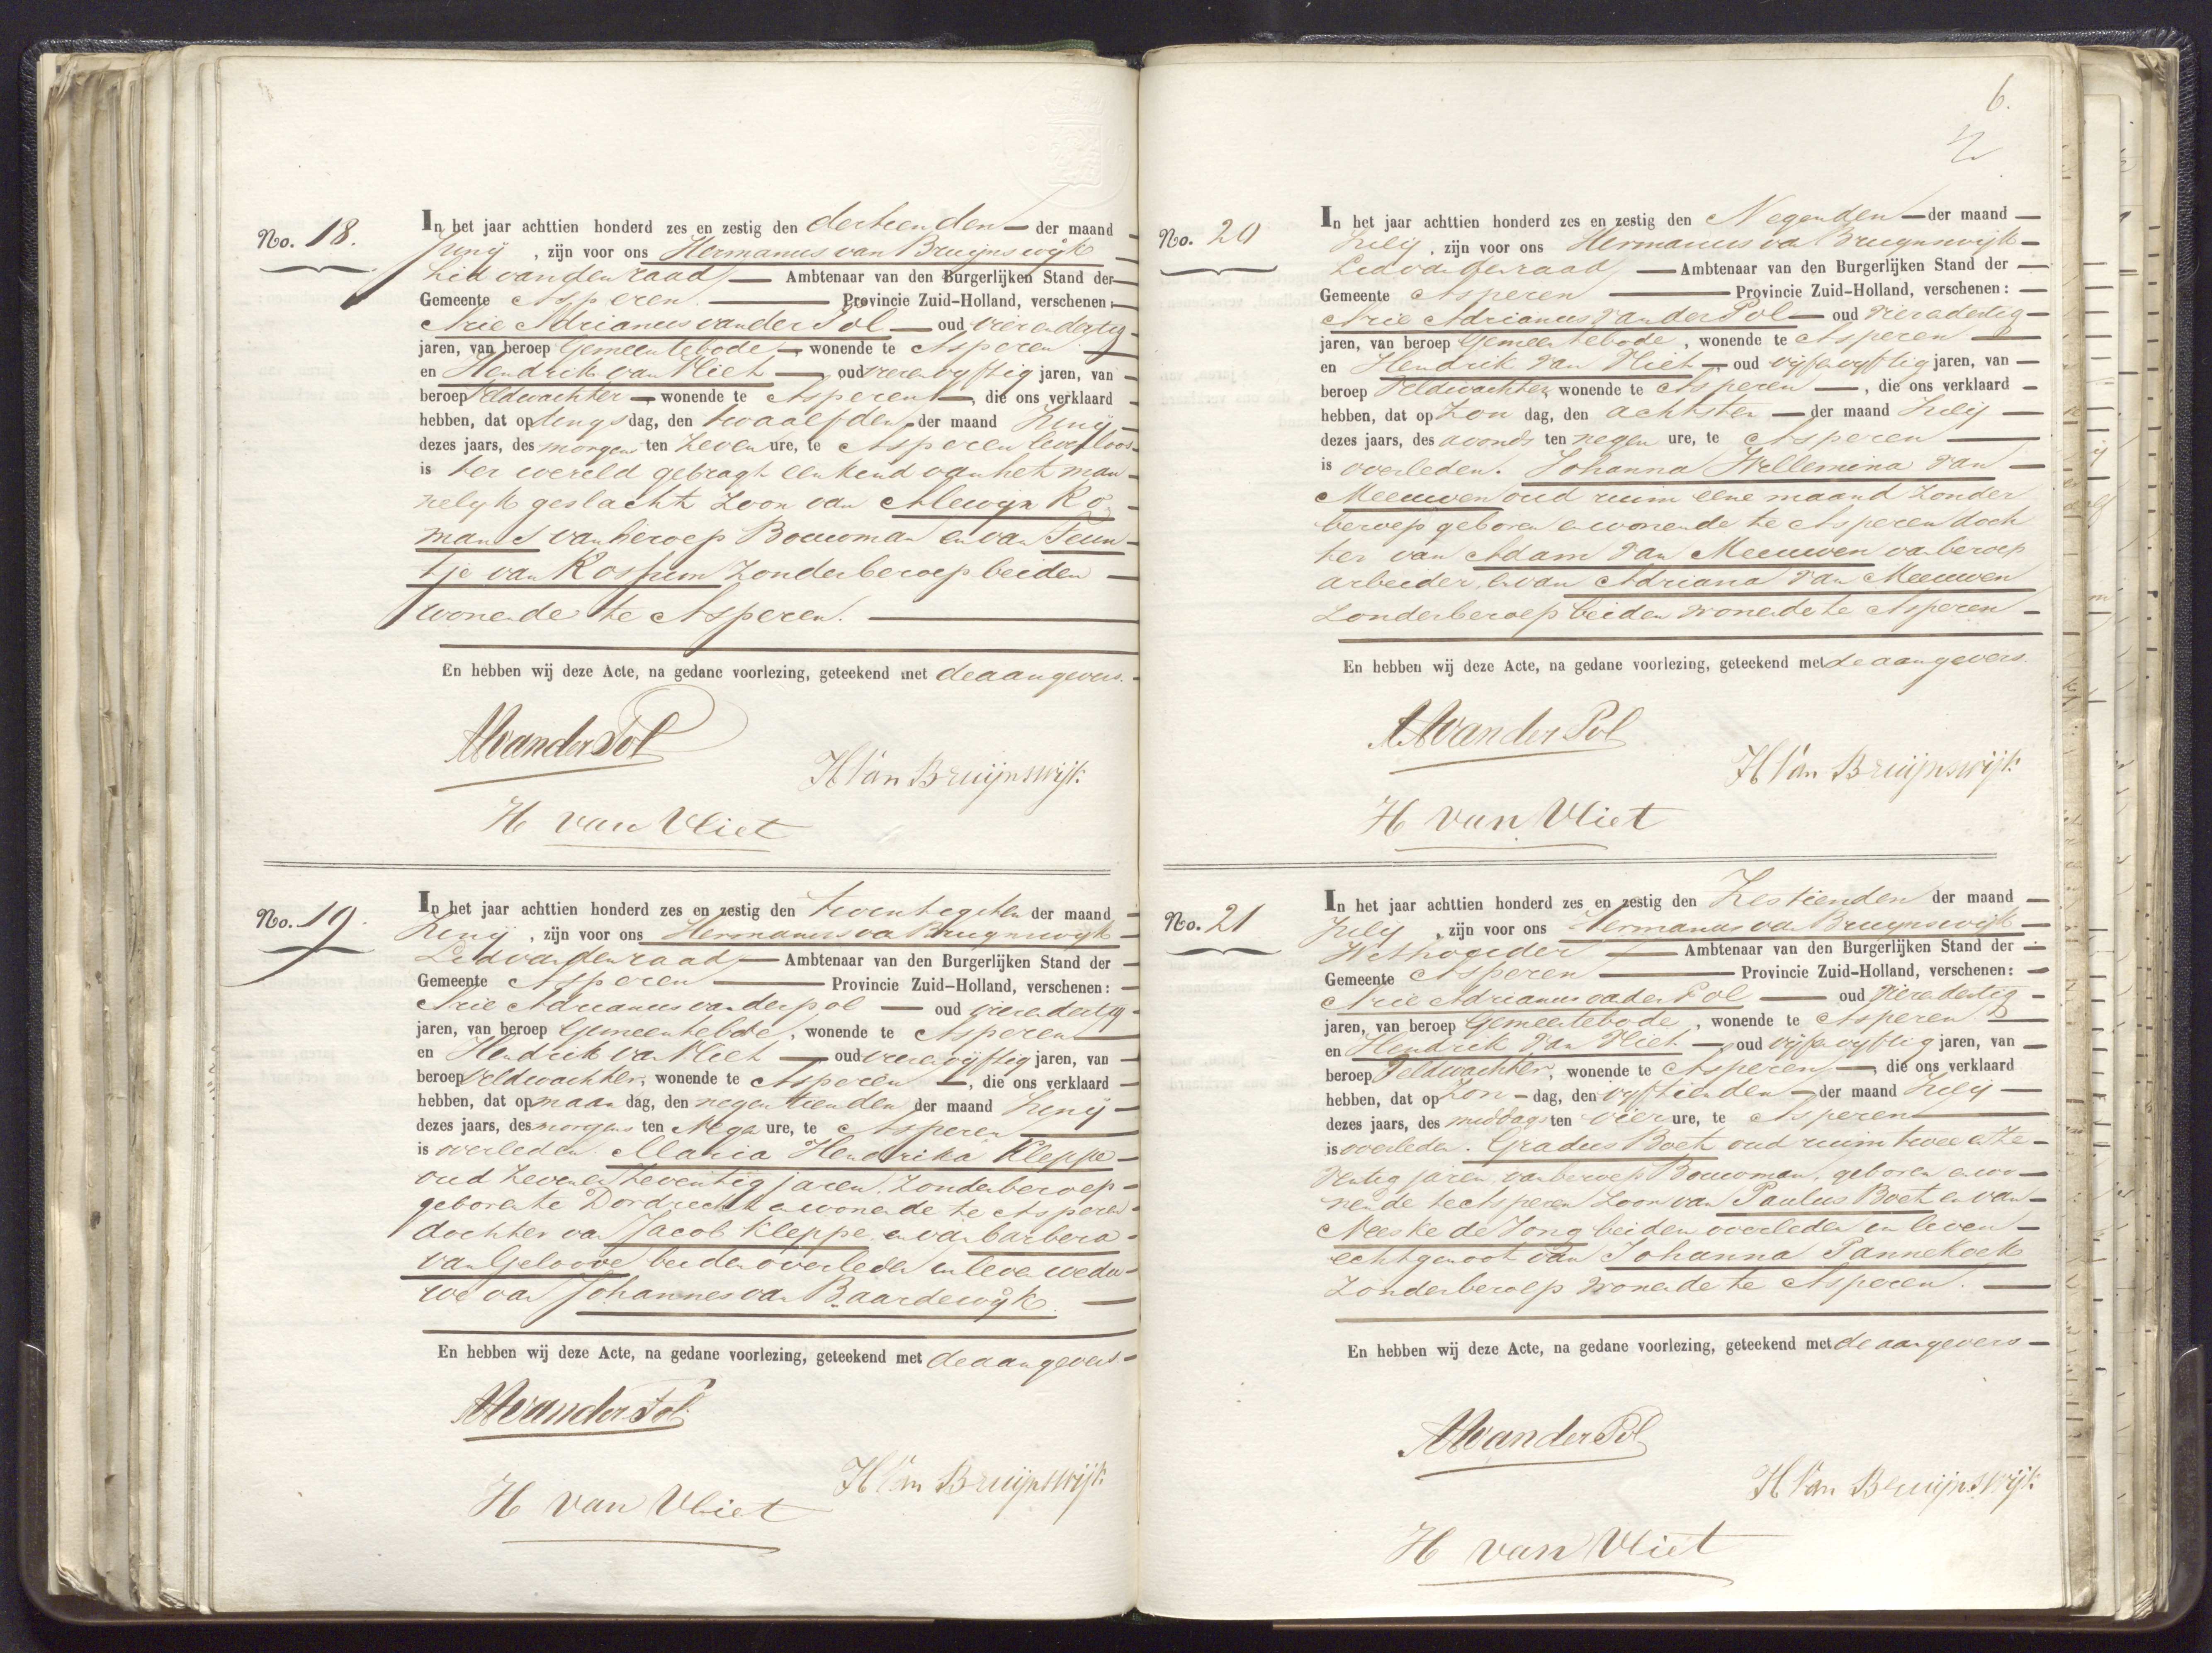 No. 18.
In het jaar achttien honderd zes en zestig den dertienden der maand
Junij, zijn voor ons Hermanus van Bruijnswijk
Lid van den raad Ambtenaar van den Burgerlijken Stand der
Gemeente Asperen. Provincie Zuid-Holland, verschenen:
Arie Adrianus van der Pol oud vierendertig
jaren, van beroep Gemeentebode wonende te Asperen
en Hendrik van Vliet oud vierenvyftig jaren, van
beroep Veldwachter wonende te Asperen, die ons verklaard
hebben, dat op dings dag, den twaalfden der maand Junij
dezes jaars, des morgens ten Zeven ure, te Asperen levenloos
is ter wereld gebragt een kind van het man
nelyk geslacht Zoon van Alewyn Ro
mans van beroep Bouwman en van Teun
tje van Rossum Zonder beroep beiden
wonende te Asperen.
En hebben wij deze Acte, na gedane voorlezing, geteekend met de aangevers.
AAvanderPol
H Van Bruijnswijk
H van Vliet
No. 19.
In het jaar achttien honderd zes en zestig den twentegsten der maand
Junij, zijn voor ons Hermanus va Bruynswyk
Lid van den raad Ambtenaar van den Burgerlijken Stand der
Gemeente Asperen Provincie Zuid-Holland, verschenen:
Arie Adrianus van der pol oud vierendertig
jaren, van beroep Gemeentebode, wonende te Asperen
en Hendrik van Vliet oud vierenvyftig jaren, van
beroep Veldwachter, wonende te Asperen, die ons verklaard
hebben, dat op maan dag, den negentienden der maand Junij
dezes jaars, des morgens ten Nege ure, te Asperen
is overleden. Maria Hendrika Kleppe
oud Zeven en Zeventig jaren. Zonder beroep
geboren te Dordrecht en wonende te Asperen
dochter van Jacob Kleppe en van barbera
van Geloove beiden overleden in leven wedu
we van Johannes van Baardewyk.
En hebben wij deze Acte, na gedane voorlezing, geteekend met de aangevers.
AAvanderPol
H Van Bruijnswijk
H van Vliet
6.
No. 20
In het jaar achttien honderd zes en zestig den Negenden der maand
Julij, zijn voor ons Hermanus va Bruynswyk
Lid van den raad Ambtenaar van den Burgerlijken Stand der
Gemeente Asperen Provincie Zuid-Holland, verschenen:
Arie Adrianus van der Pol oud vierendertig
jaren, van beroep Gemeentebode, wonende te Asperen
en Hendrik van Vliet oud vyfenvyftig jaren, van
beroep Veldwachter wonende te Asperen, die ons verklaard
hebben, dat op Zon dag, den achtsten der maand Julij
dezes jaars, des avonds ten negen ure, te Asperen
is overleden. Johanna Wellemina van
Meeuwen oud ruim eene maand Zonder
beroep geboren en wonende te Asperen doch
ter van Adam van Meeuwen van beroep
arbeider, en van Adriana van Meeuwen
Zonder beroep beiden wonende te Asperen
En hebben wij deze Acte, na gedane voorlezing, geteekend met de aangevers.
AAvanderPol
H Van Bruijnswijk
H van Vliet
No. 21
In het jaar achttien honderd zes en zestig den Zestienden der maand
Julij, zijn voor ons Hermanus van Bruynswyk
Wethouder Ambtenaar van den Burgerlijken Stand der
Gemeente Asperen Provincie Zuid-Holland, verschenen:
Arie Adrianus van der Pol oud vierendertig
jaren, van beroep Gemeentebode, wonende te Asperen
en Hendrik van Vliet oud vyfenvyftig jaren, van
beroep Veldwachter, wonende te Asperen, die ons verklaard
hebben, dat op Zon dag, den vyftienden der maand Julij
dezes jaars, des middags ten vier ure, te Asperen
is overleden. Gradus Boet oud ruim twee en Ze
ventig jaren, van beroep Bouwman, geboren en wo
nende te Asperen Zoon van Paulus Boet en van
Neeske de Jong beiden overleden in leven
echtgenoot van Johanna Pannekoek
Zonder beroep wonende te Asperen.
En hebben wij deze Acte, na gedane voorlezing, geteekend met de aangevers
AAvanderPol
H Van Bruijnswijk
H van Vliet